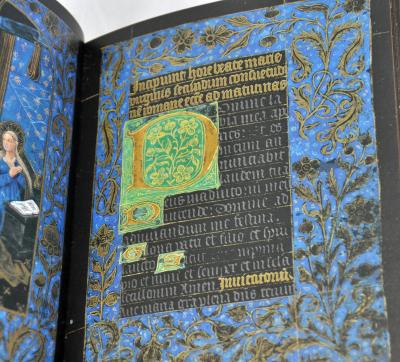 Incipiunt hore beate marie
virginis secundum consuetud
nē romane ecce ad matutinas
D omine la
bia mea ap
nies Et os
meum an
nunciabit
laudem tu
Deus in adiutoriū meū
intende Domine ad
adiuuandum me festina
Gloria patri et filio et spiri
tui sancto
pio et nunc et semper et in secla
seculorum Amen Inuitatoriū
Aue maria gratia plena dñs tecum